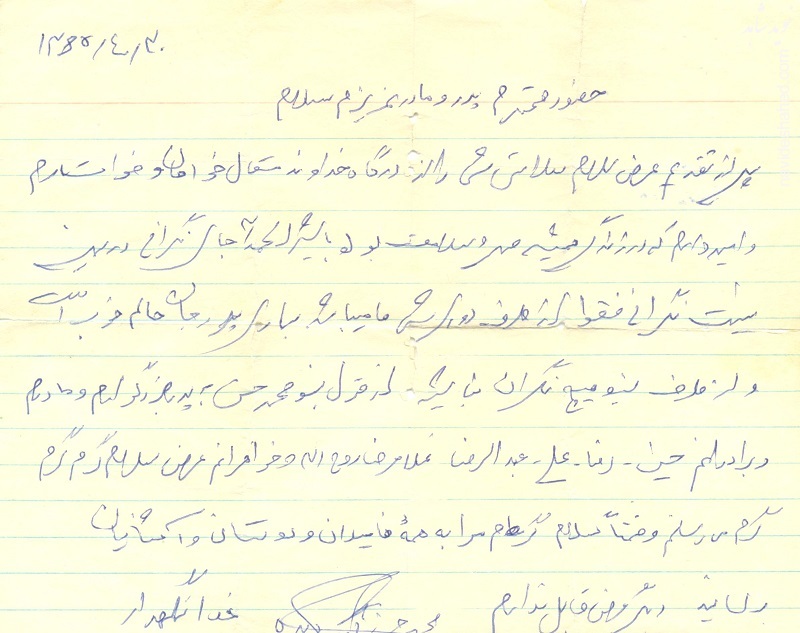 ۱۳۶۵/۴/۳۰
حضور محترم پدر و مادر عزیزم سلام
پس از تقدیم عرض سلام سلامتی شما را از درگاه خداوند متعال خواهان و خواستارم
و امیدوارم که در زندگی همیشه صحیح و سلامت بوده باشید الحمدلله جای نگرانی در بین
نیست نگرانی فقط از طرف دوری شما میباشد باری پدر جان حالم خوب است
و از طرف بنده هیچ نگران نباشید. از قول بنده محمد حسن به پدر بزرگوارم و مادرم
و برادرانم حسین - رضا - علی - عبدالرضا غلامرضا روح اله و خواهرانم عرض سلام گرم گرم
گرم می رسانم و ضمناً سلام گرم مرا به همهٔ فامیلان و دوستان و آشنایان
رسانید دیگر عرض قابل ندارم محمد حسن خدا نگهدار